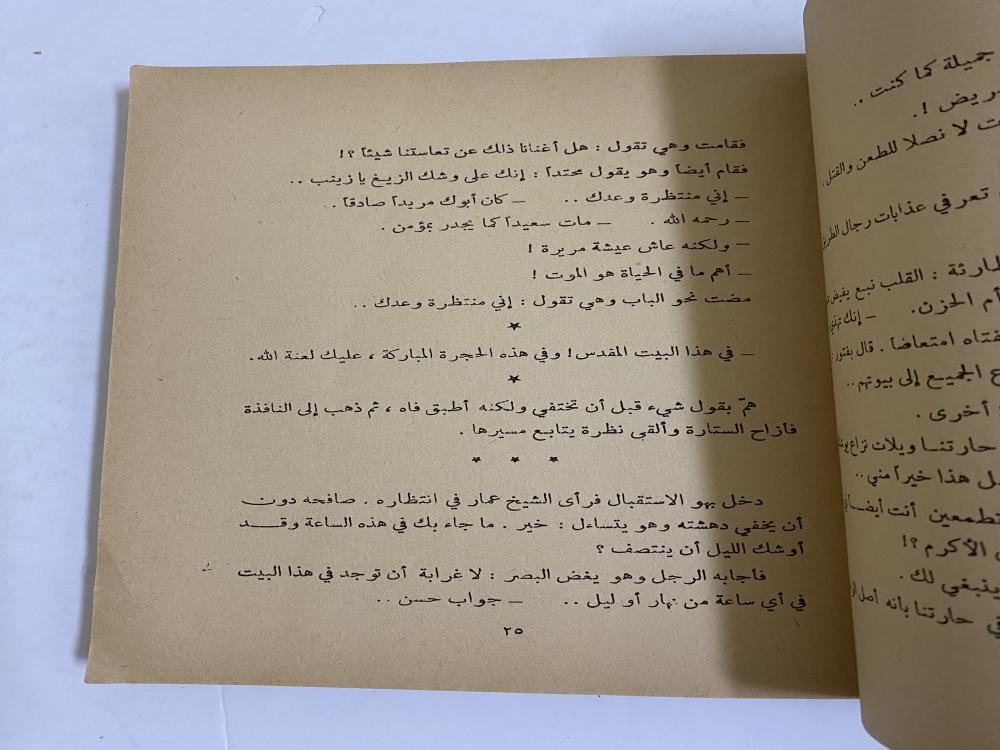 فقامت وهي تقول : هل أغنانا ذلك عن تعاستنا شيئاً ؟!
فقام أيضاً وهو يقول محتداً : إنك على وشك الزيغ يا زينب ..
ــ إني منتظرة وعدك .. ــ كان أبوك مريداً صادقاً .
ــ رحمه الله . ــ مات سعيداً كما يجدر بمؤمن .
ــ ولكنه عاش عيشة مريرة !
ــ أهم ما في الحياة هو الموت !
مضت نحو الباب وهي تقول : إني منتظرة وعدك ..
*
ــ في هذا البيت المقدس ! وفي هذه الحجرة المباركة ، عليك لعنة الله.
*
همّ بقول شيء قبل أن تختفي ولكنه أطبق فاه ، ثم ذهب إلى النافذة
فأزاح الستارة وألقى نظرة يتابع مسيرها .
* * *
دخل بهو الاستقبال فرأى الشيخ عمار في انتظاره . صافحه دون
أن يخفي دهشته وهو يتساءل : خير . ما جاء بك في هذه الساعة وقد
أوشك الليل أن ينتصف ؟
فأجابه الرجل وهو يغض البصر : لا غرابة أن توجد في هذا البيت
في أي ساعة من نهار أو ليل .. ــ جواب حسن ..
٢٥
جميلة كما كنت ..
ريض !.
لا نصلا للطعن والقتل .
تعرفي عذابات رجال
طارئة : القلب نبع يفيض
أم الحزن . ــ إنك
فتاه امتعاضاً . قال بفتور :
الجميع إلى بيوتهم ..
أخرى .
حارتنا ويلات نزاع
هذا خيراً مني ..
تطمعين أنت أيضاً
الأكرم ؟!
ينبغي لك .
في حارتنا بأنه أصل